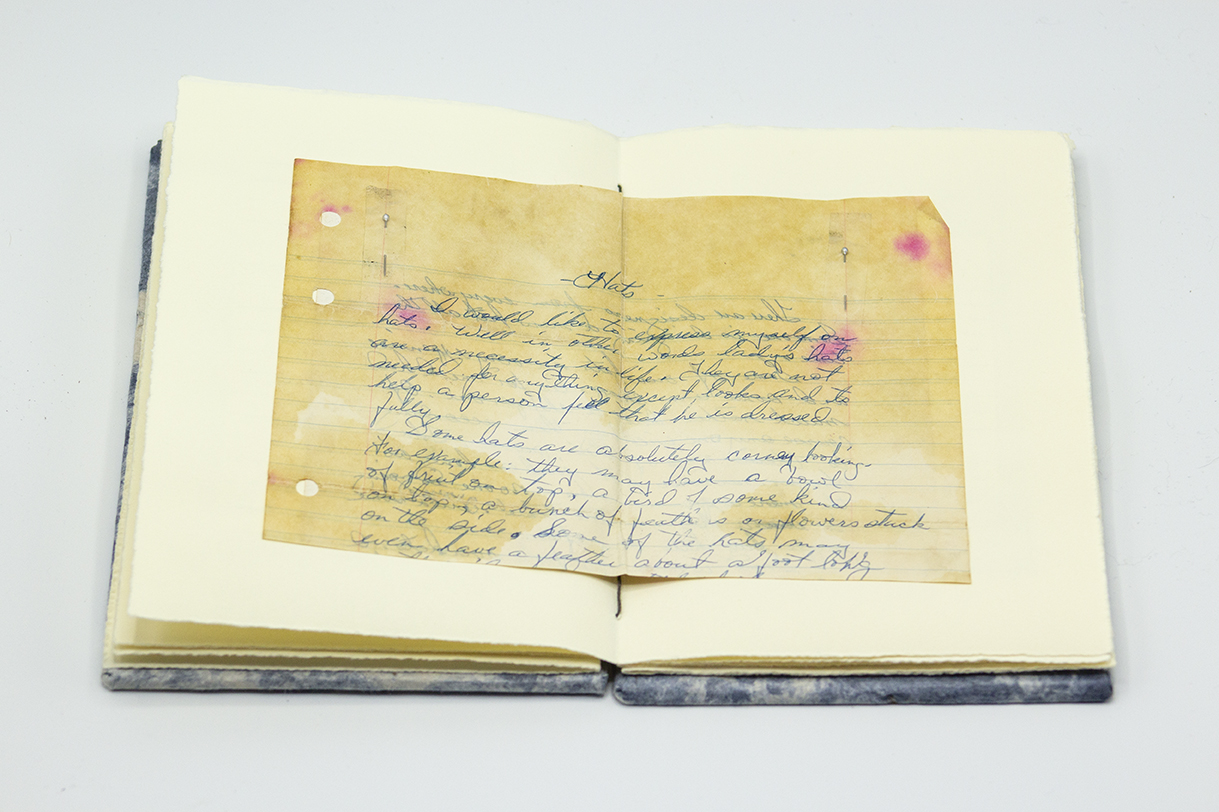 -Hats-
I would like to express myself on
hats. Well in other words lady's hats
are a necessity in life. They are not
needed for anything except looks and to
help a person feel that he is dressed
fully.
Some hats are absolutely corney looking.
For example: they may have a bowl
of fruit on top, a bird of some kind
on top, a bunch of feath is or flowers stuck
on the side. Some of the hats may
even have a feather about a foot long